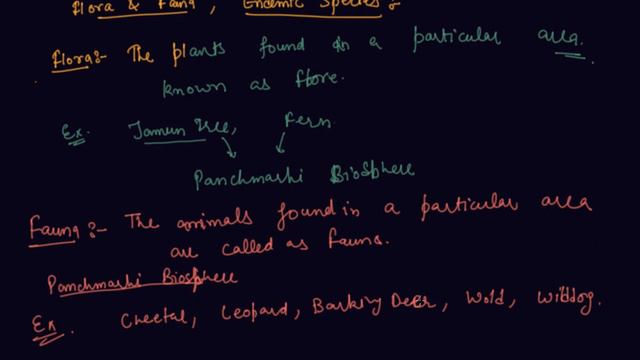 Flora & Fana, Endemic Species :-
Flora :- The plants found in a particular area.
known as flore.
Ex. Jamun Tree, Fern
Panchmarhi Biosphere
Fauna :- The animals found in a particular area
are called as fauna.
Panchmarhi Biosphere
Ex. Cheetal, Leopard, Barking Deer, Wold, Wilddog.